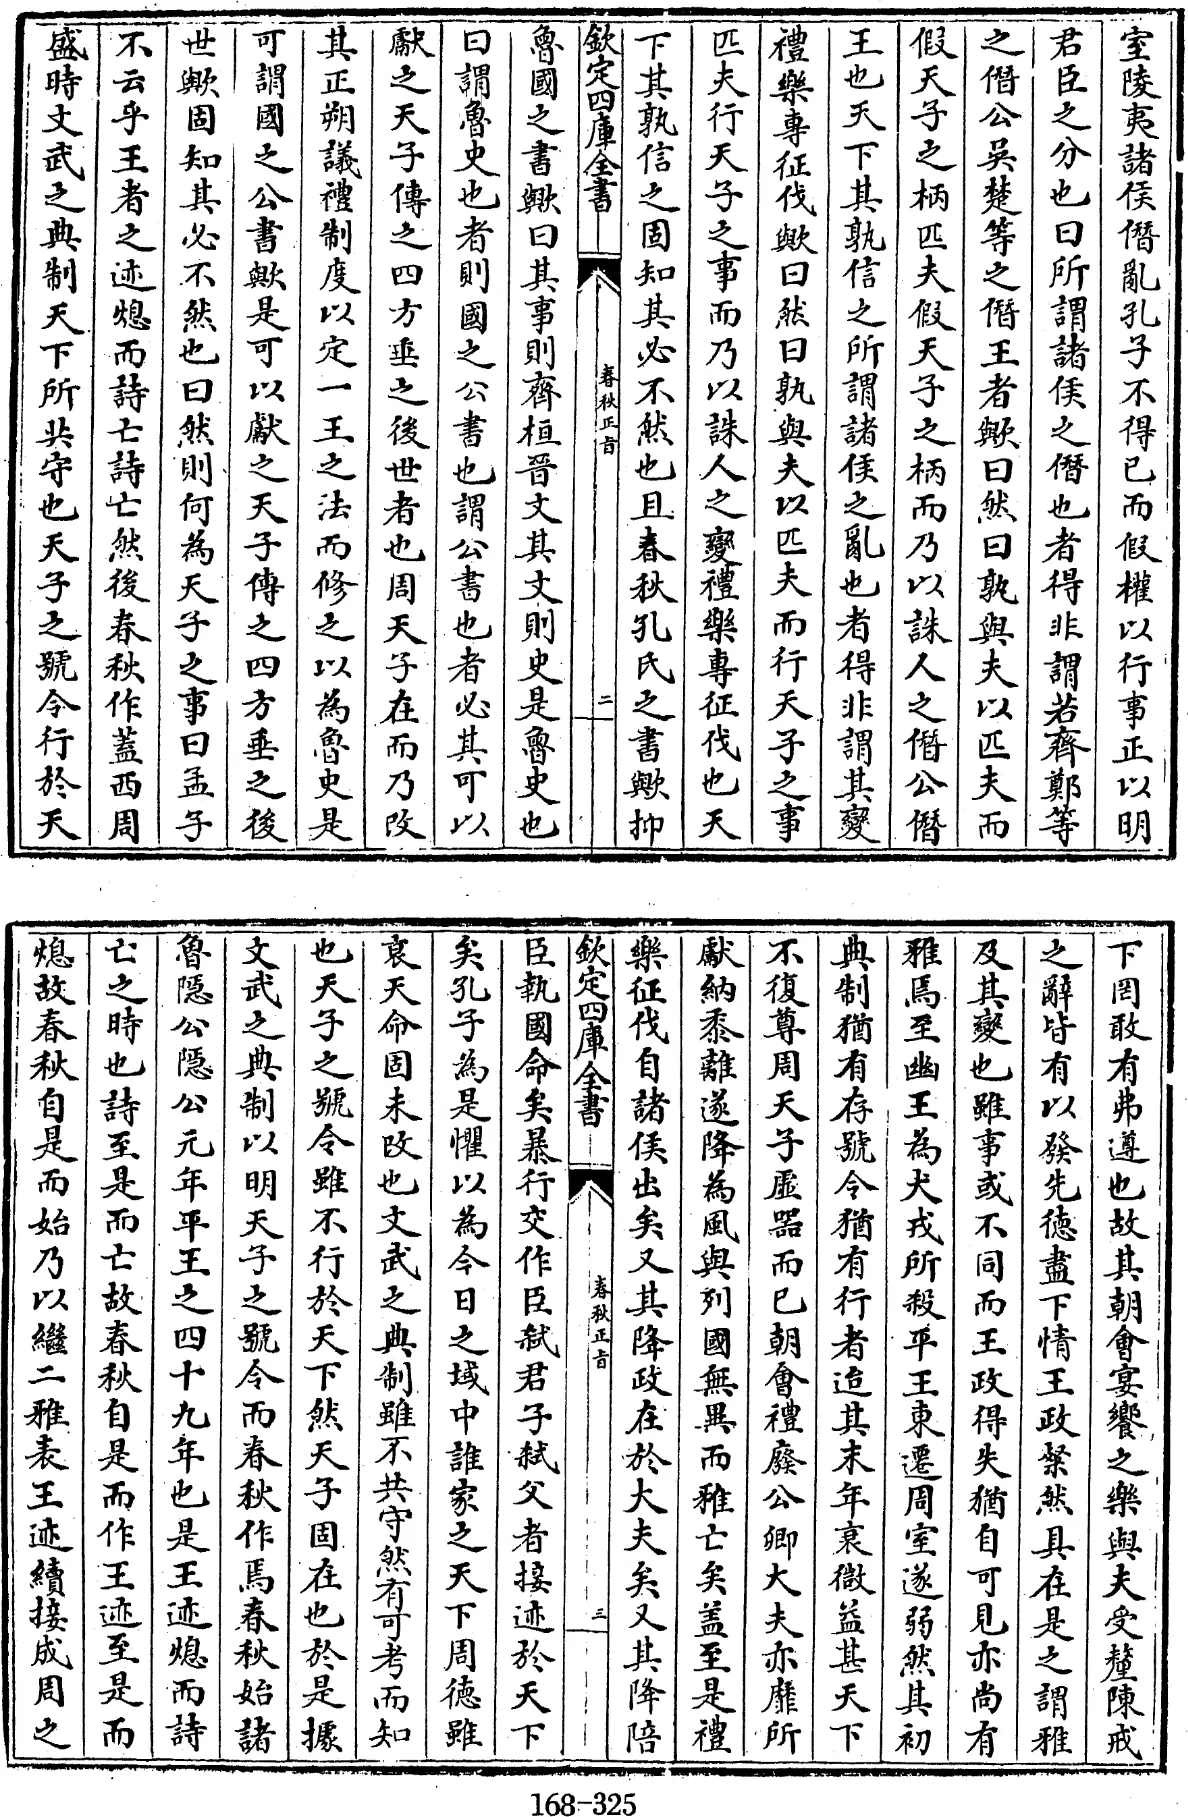 室陵夷諸侯僭亂孔子不得已而假權以行事正以明
君臣之分也曰所謂諸侯之僭也者得非謂若齊鄭等
之僭公吳楚等之僭王者歟曰然曰孰與夫以匹夫而
假天子之柄匹夫假天子之柄而乃以誅人之僭公僭
王也天下其孰信之所謂諸侯之亂也者得非謂其變
禮樂專征伐歟曰然曰孰與夫以匹夫而行天子之事
匹夫行天子之事而乃以誅人之變禮樂專征伐也天
下其孰信之固知其必不然也且春秋孔氏之書歟抑
欽定四庫全書
春秋正旨
二
魯國之書歟曰其事則齊桓晉文其文則史是魯史也
曰謂魯史也者則國之公書也謂公書也者必其可以
獻之天子傳之四方垂之後世者也周天子在而乃改
其正朔議禮制度以定一王之法而修之以為魯史是
可謂國之公書歟是可以獻之天子傳之四方垂之後
世歟固知其必不然也曰然則何為天子之事曰孟子
不云乎王者之迹熄而詩亡詩亡然後春秋作蓋西周
盛時文武之典制天下所共守也天子之號令行於天
下罔敢有弗遵也故其朝會宴饗之樂與夫受釐陳戒
之辭皆有以發先德盡下情王政粲然具在是之謂雅
及其變也雖事或不同而王政得失猶自可見亦尚有
雅焉至幽王為犬戎所殺平王東遷周室遂弱然其初
典制猶有存號令猶有行者迨其末年衰微益甚天下
不復尊周天子虛器而已朝會禮廢公卿大夫亦靡所
獻納黍離遂降為風與列國無異而雅亡矣蓋至是禮
樂征伐自諸侯出矣又其降政在於大夫矣又其降陪
欽定四庫全書
春秋正旨
三
臣執國命矣暴行交作臣弒君子弒父者接迹於天下
矣孔子為是懼以為今日之域中誰家之天下周德雖
衰天命固未改也文武之典制雖不共守然有可考而知
也天子之號令雖不行於天下然天子固在也於是據
文武之典制以明天子之號令而春秋作焉春秋始諸
魯隱公隱公元年平王之四十九年也是王迹熄而詩
亡之時也詩至是而亡故春秋自是而作王迹至是而
熄故春秋自是而始乃以繼二雅表王迹續接成周之
168-325